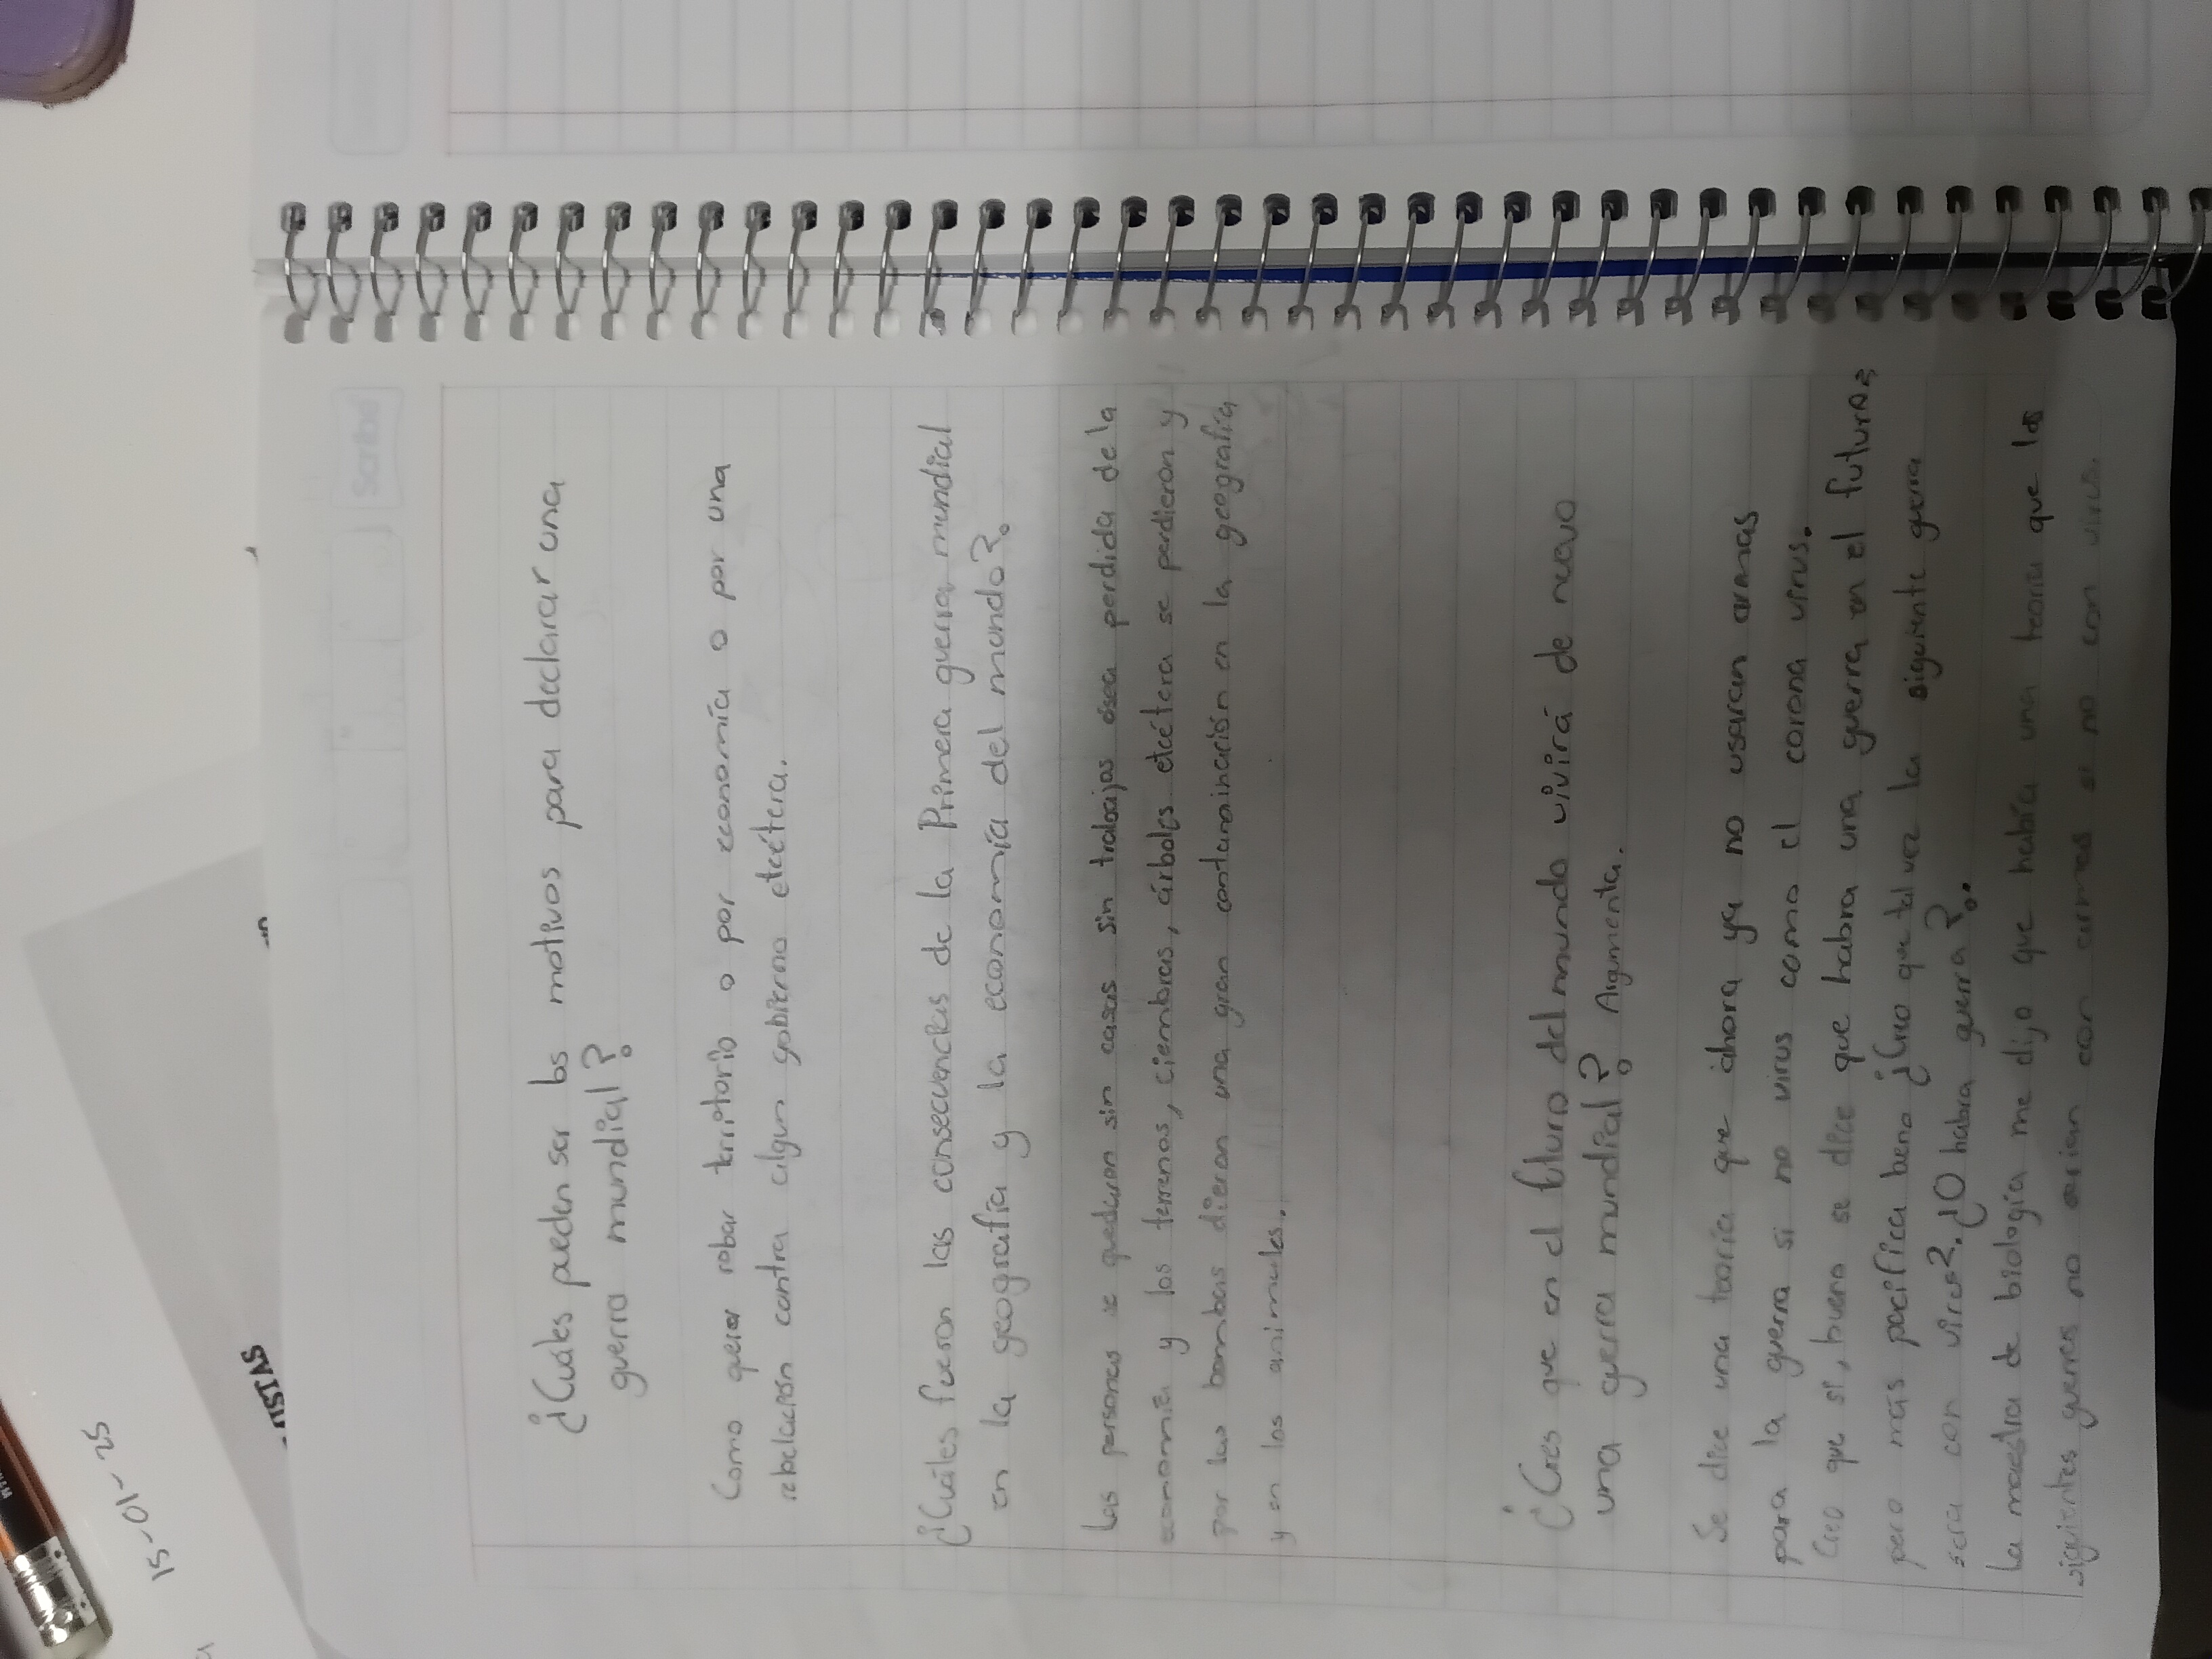 Scribe
¿Cuáles pueden ser los motivos para declarar una
guerra mundial?
Como querer robar territorio o por economía o por una
rebelación contra algun gobierno etcétera.
¿Cuáles fueron las consecuencias de la Primera guerra mundial
en la geografía y la economía del mundo?
Las personas se quedaron sin casas sin trabajos osea perdida de la
economía y los terrenos, ciembras, árboles etcétera se perdieron y
por las bombas dieron una gran contaminación en la geografía
y en los animales.
¿Cres que en el futuro del mundo vivirá de nuevo
una guerra mundial? Argumenta.
Se dice una teoría que ahora ya no usaran armas
para la guerra si no virus como el corona virus.
Creo que si, bueno se dice que habra una guerra en el futuro,
pero más pacifica beno ¿Creo que tal vez la siguiente guerra
sera con virus?. ¿O habra guerra?.
La maestra de biología me dijo que había una teoria que las
siguientes guerras no serian con armas si no con virus.
15-01-25
USISTAS